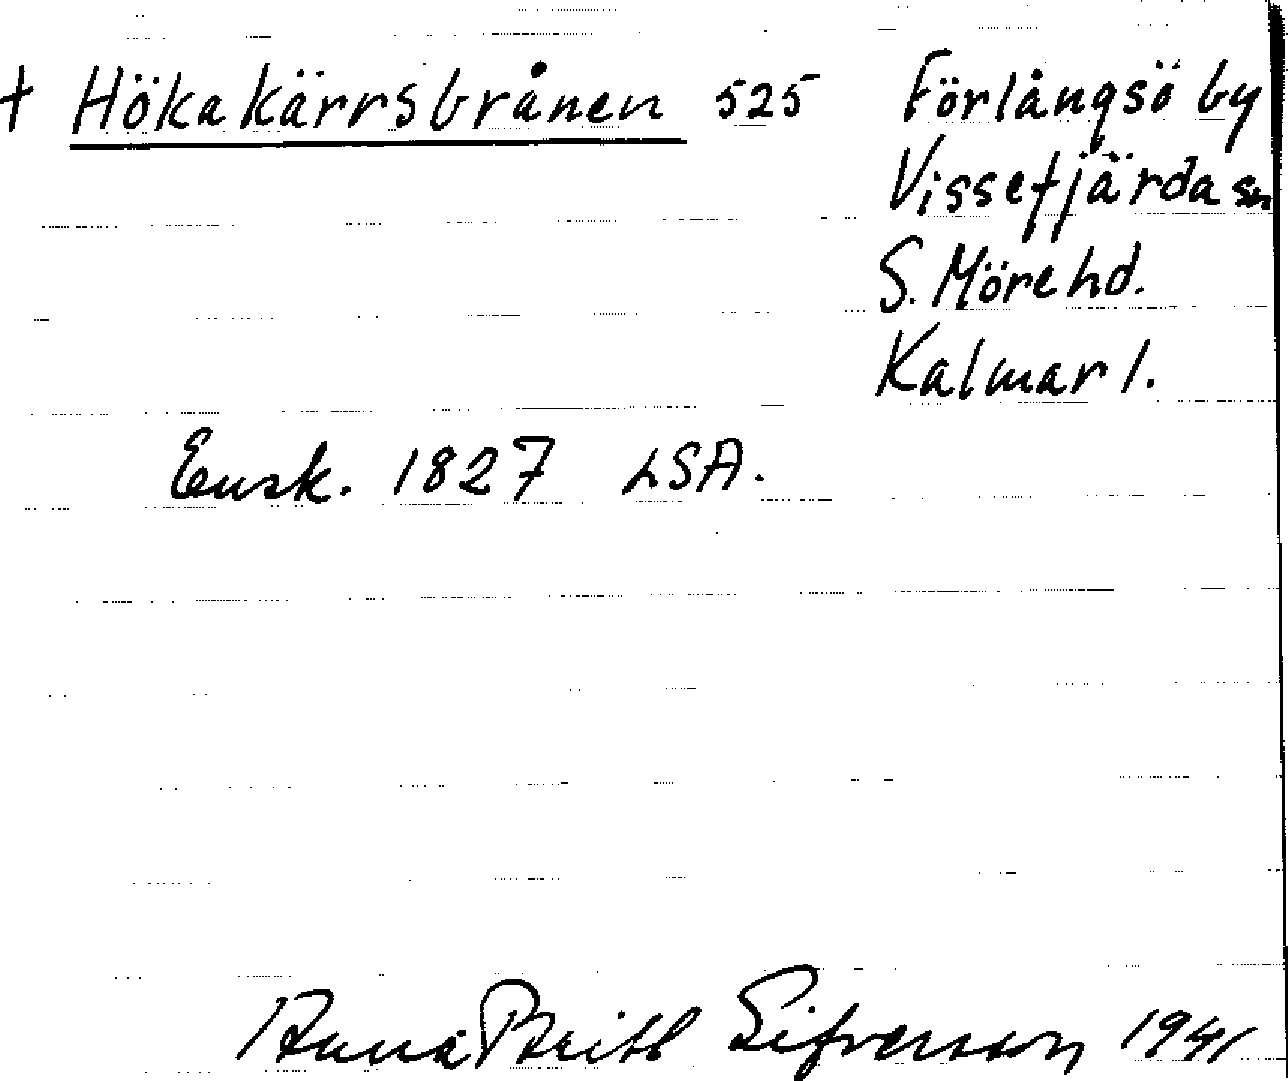 + Hökakärrsbrånen 525 Förlångsö by
Vissefjärda sn
S. Möre hd.
Kalmar l.
Ensk. 1827 LSA.
Anna Britt Sifversson 1941